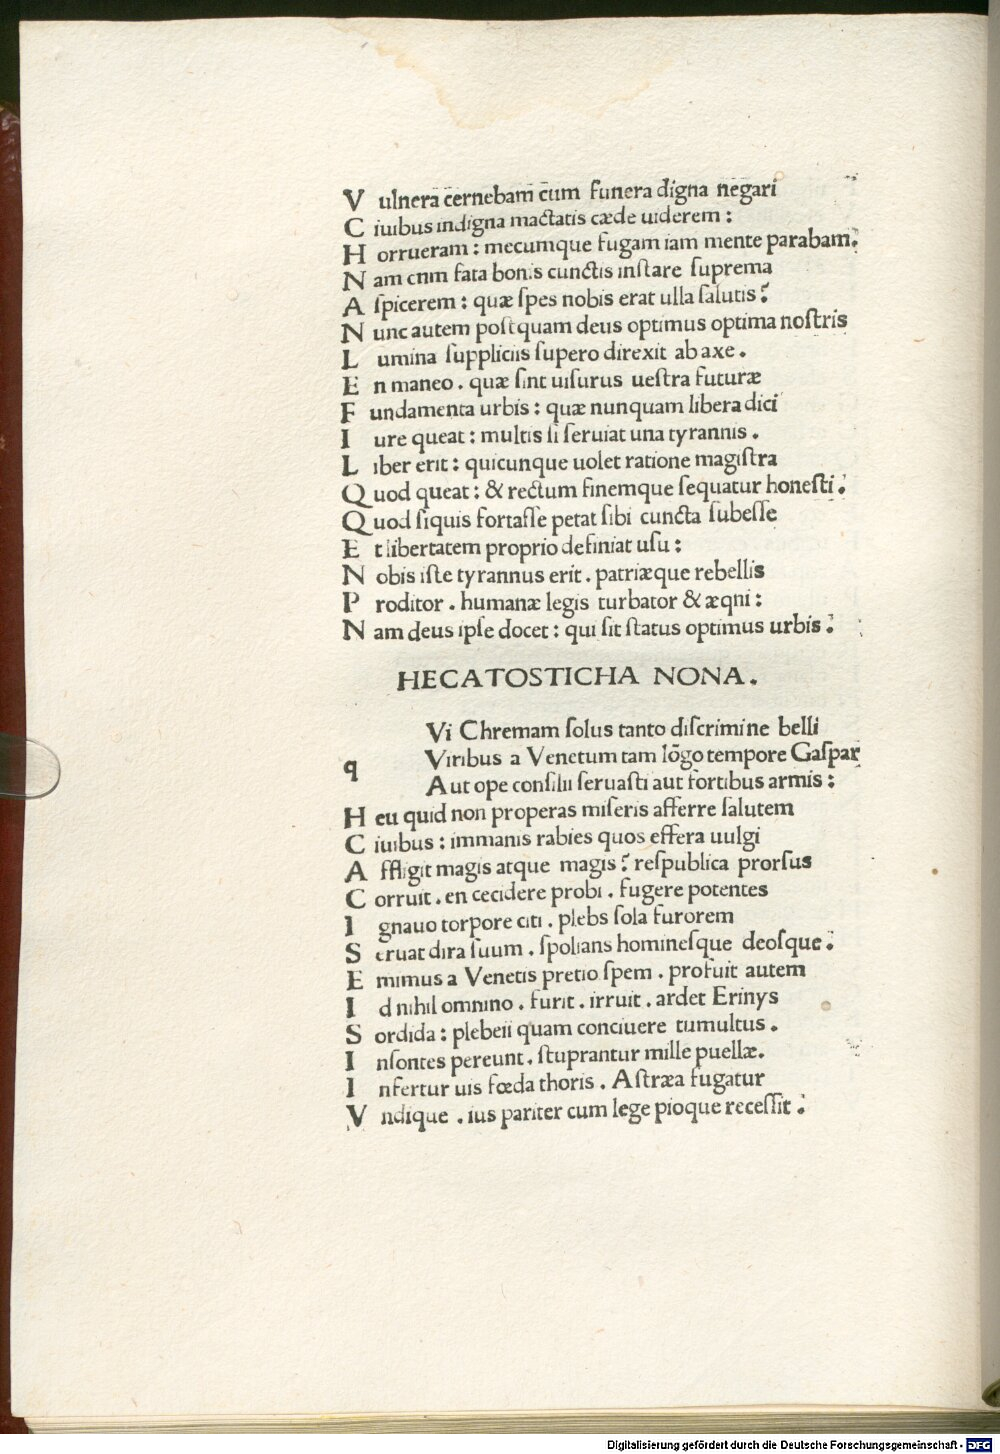 V ulnera cernebam cum funera digna negari
C iuibus indigna mactatis cæde uiderem :
H orrueram : mecumque fugam iam mente parabam.
N am cnim fata bonis cunctis instare suprema
A spicerem : quæ spes nobis erat ulla salutis?
N unc autem postquam deus optimus optima nostris
L umina suppliciis supero direxit ab axe .
E n maneo . quæ sint uisurus uestra futuræ
F undamenta urbis : quæ nunquam libera dici
I ure queat : multis si seruiat una tyrannis .
L iber erit : quicunque uolet ratione magistra
Q uod queat : & rectum finemque sequatur honesti .
Q uod siquis fortasse petat sibi cuncta subesse
E t libertatem proprio definiat usu :
N obis iste tyrannus erit . patriæque rebellis
P roditor . humanæ legis turbator & æqni :
N am deus ipse docet : qui sit status optimus urbis .
HECATOSTICHA NONA .
q Vi Chremam solus tanto discrimine belli
Viribus a Venetum tam lōgo tempore Gaspar
Aut ope consilii seruasti aut fortibus armis :
H eu quid non properas miseris afferre salutem
C iuibus : immanis rabies quos effera uulgi
A ffligit magis atque magis? respublica prorsus
C orruit . en cecidere probi . fugere potentes
I gnauo torpore citi . plebs sola furorem
S eruat dira suum . spolians hominesque deosque .
E mimus a Venetis pretio spem . profuit autem
I d nihil omnino . furit . irruit . ardet Erinys
S ordida : plebeii quam conciuere tumultus .
I nsontes pereunt . stuprantur mille puellæ .
I nfertur uis fœda thoris . Astræa fugatur
V ndique . ius pariter cum lege pioque recessit .
Digitalisierung gefördert durch die Deutsche Forschungsgemeinschaft - DFG